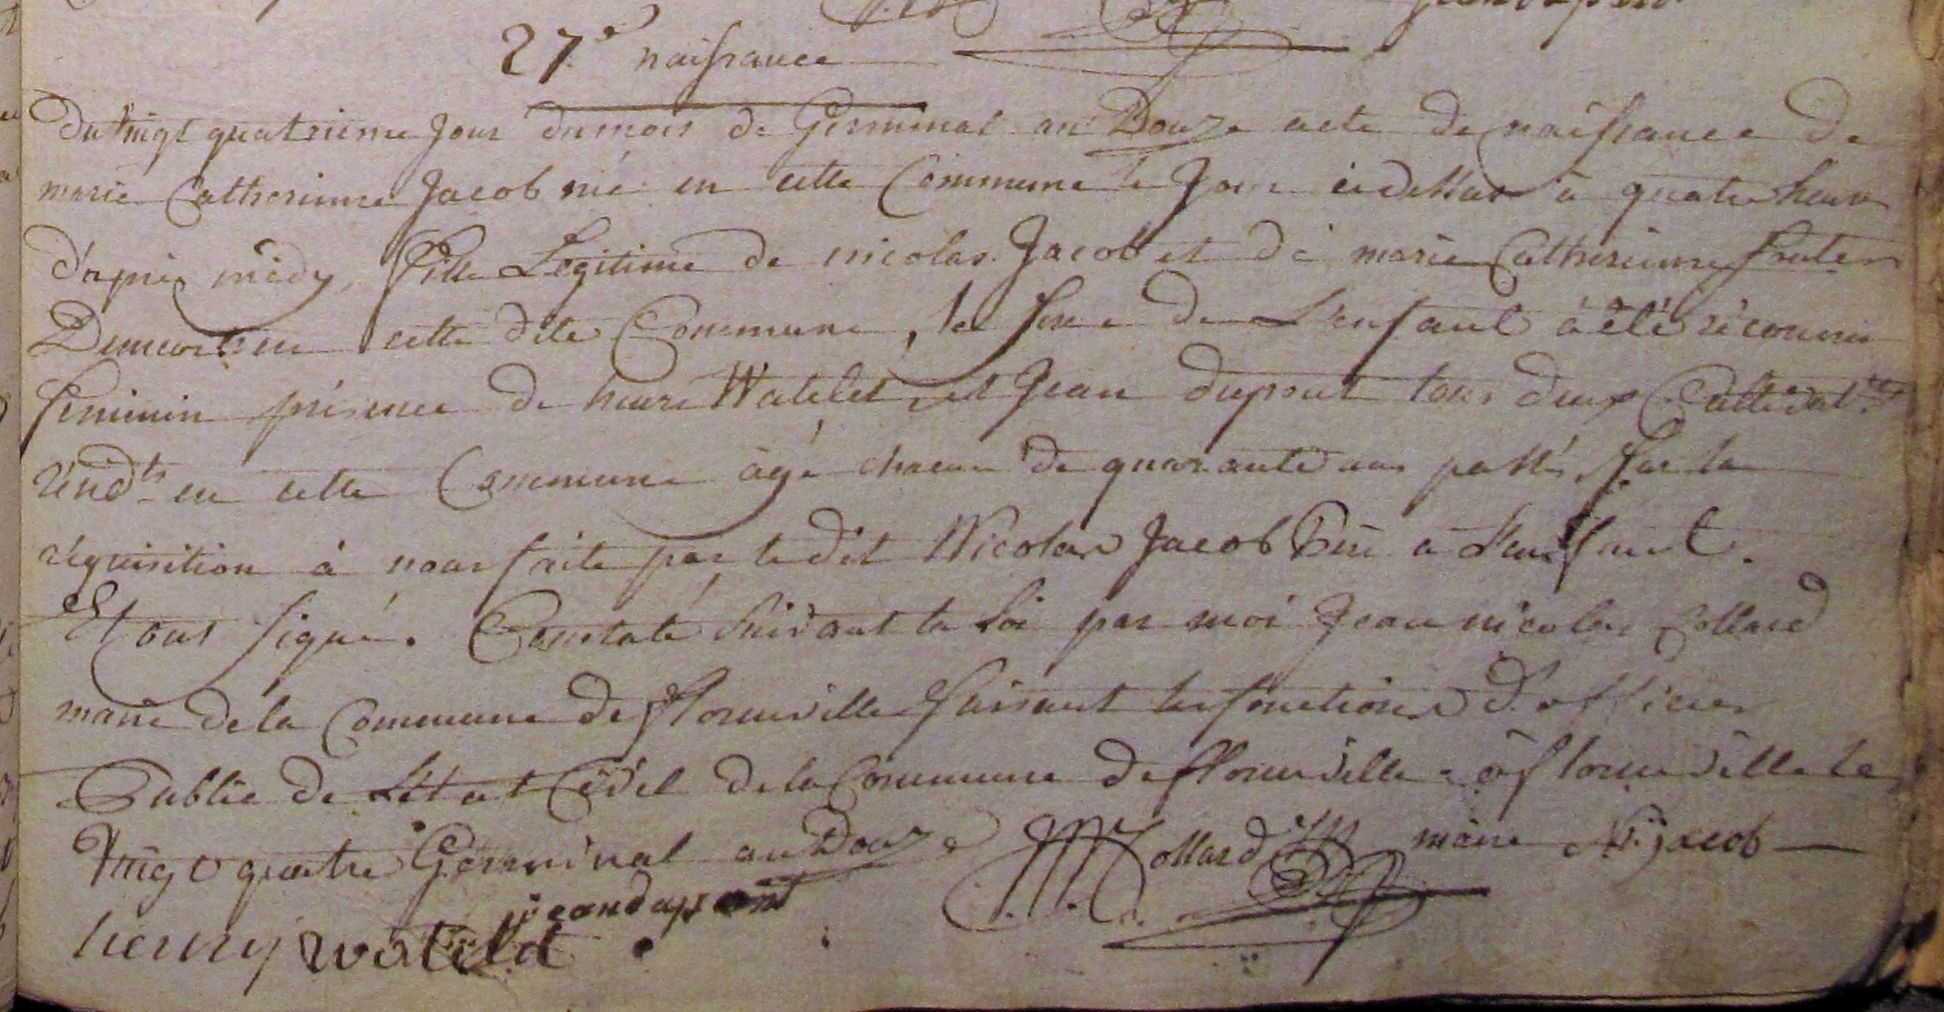 27.e naissance
Du Vingt quatrieme Jour du mois de Germinal an Douze acte de naissance de
marie Catherienne Jacob né en cette Commune le Jour cidessus à quatre heure
d'après midy, fille Légitime de nicolas Jacob et dé marie Catherienne
Demeurt en cette dite Commune, le sexe de L'enfant à été réconnu
feminin présence de henri Watelet et Jean dupont tous deux Cultivat.rs
Résid.ts en cette Commune âgé chacun de quarante ans passés, sur la
réquisition à nous faite par le dit Nicolas Jacob Père a L'enfant.
Et ont signé. Constaté suivant la Loi par moi Jean nicolas Collard
maire de la Commune de florenville faisant les fonctions d'officier
Public de L'Etat Civil de la Commune de florenville = à florenville le
Vingt quatre Germinal an Douze Collard maire N: jacob
jean dupont
henry watelet